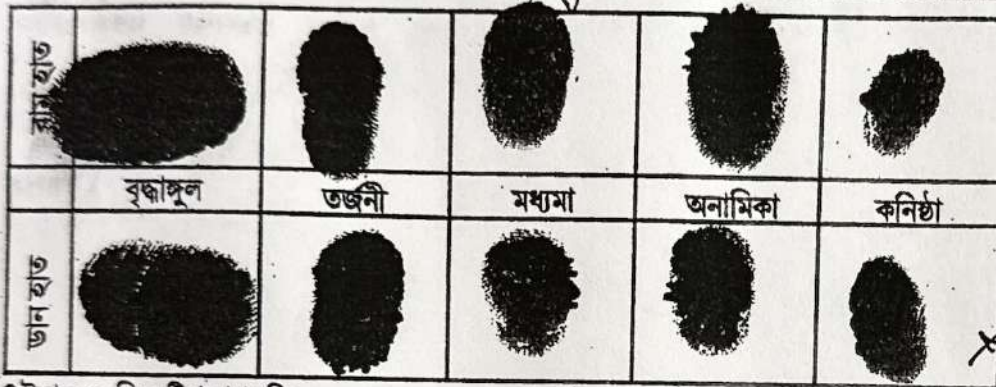 বাম হাত
বৃদ্ধাঙ্গুল তর্জনী মধ্যমা অনামিকা কনিষ্ঠা
ডান হাত